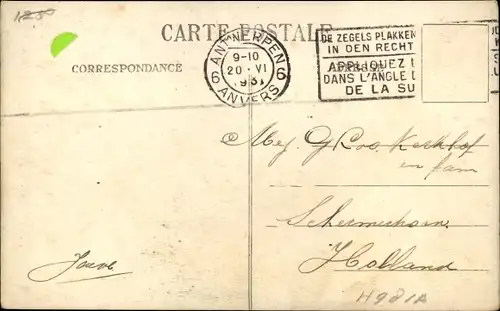 1250
CARTE POSTALE
CORRESPONDANCE
ANTWERPEN
6 6
9-10
20 · VI
1931
ANVERS
DE ZEGELS PLAKKEN
IN DEN RECHT
APPLIQUEZ L
DANS L'ANGLE
DE LA SU
Mej. G Roo Kerkhof
en fam
Schermerhorn
Holland
H981A